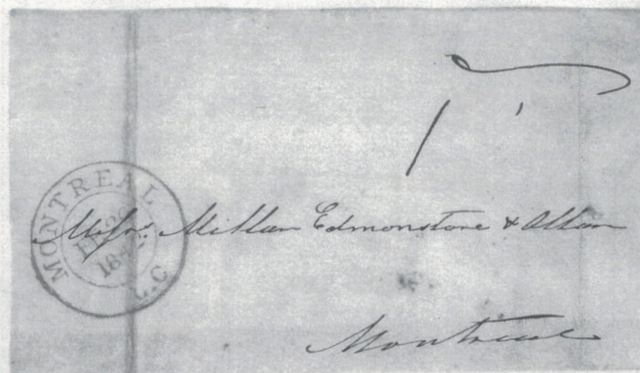 1
MONTREAL L.C
Messrs Millar Edmonstone & Allan
Montreal